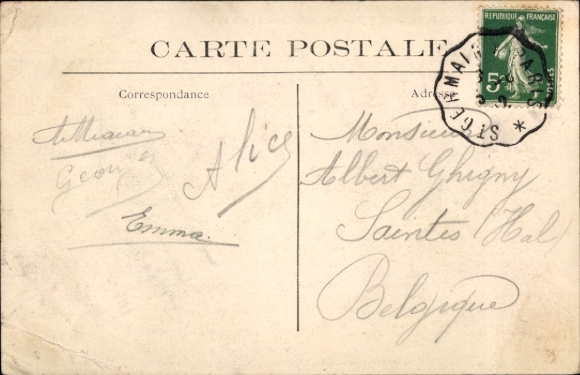 CARTE POSTALE
Correspondance
Georges
Alice
Emma.
Adresse
REPUBLIQUE FRANÇAISE
5c
POSTES
ST GERMAIN PARIS *
Monsieur
Albert Ghigny
Saintes (Hal)
Belgique